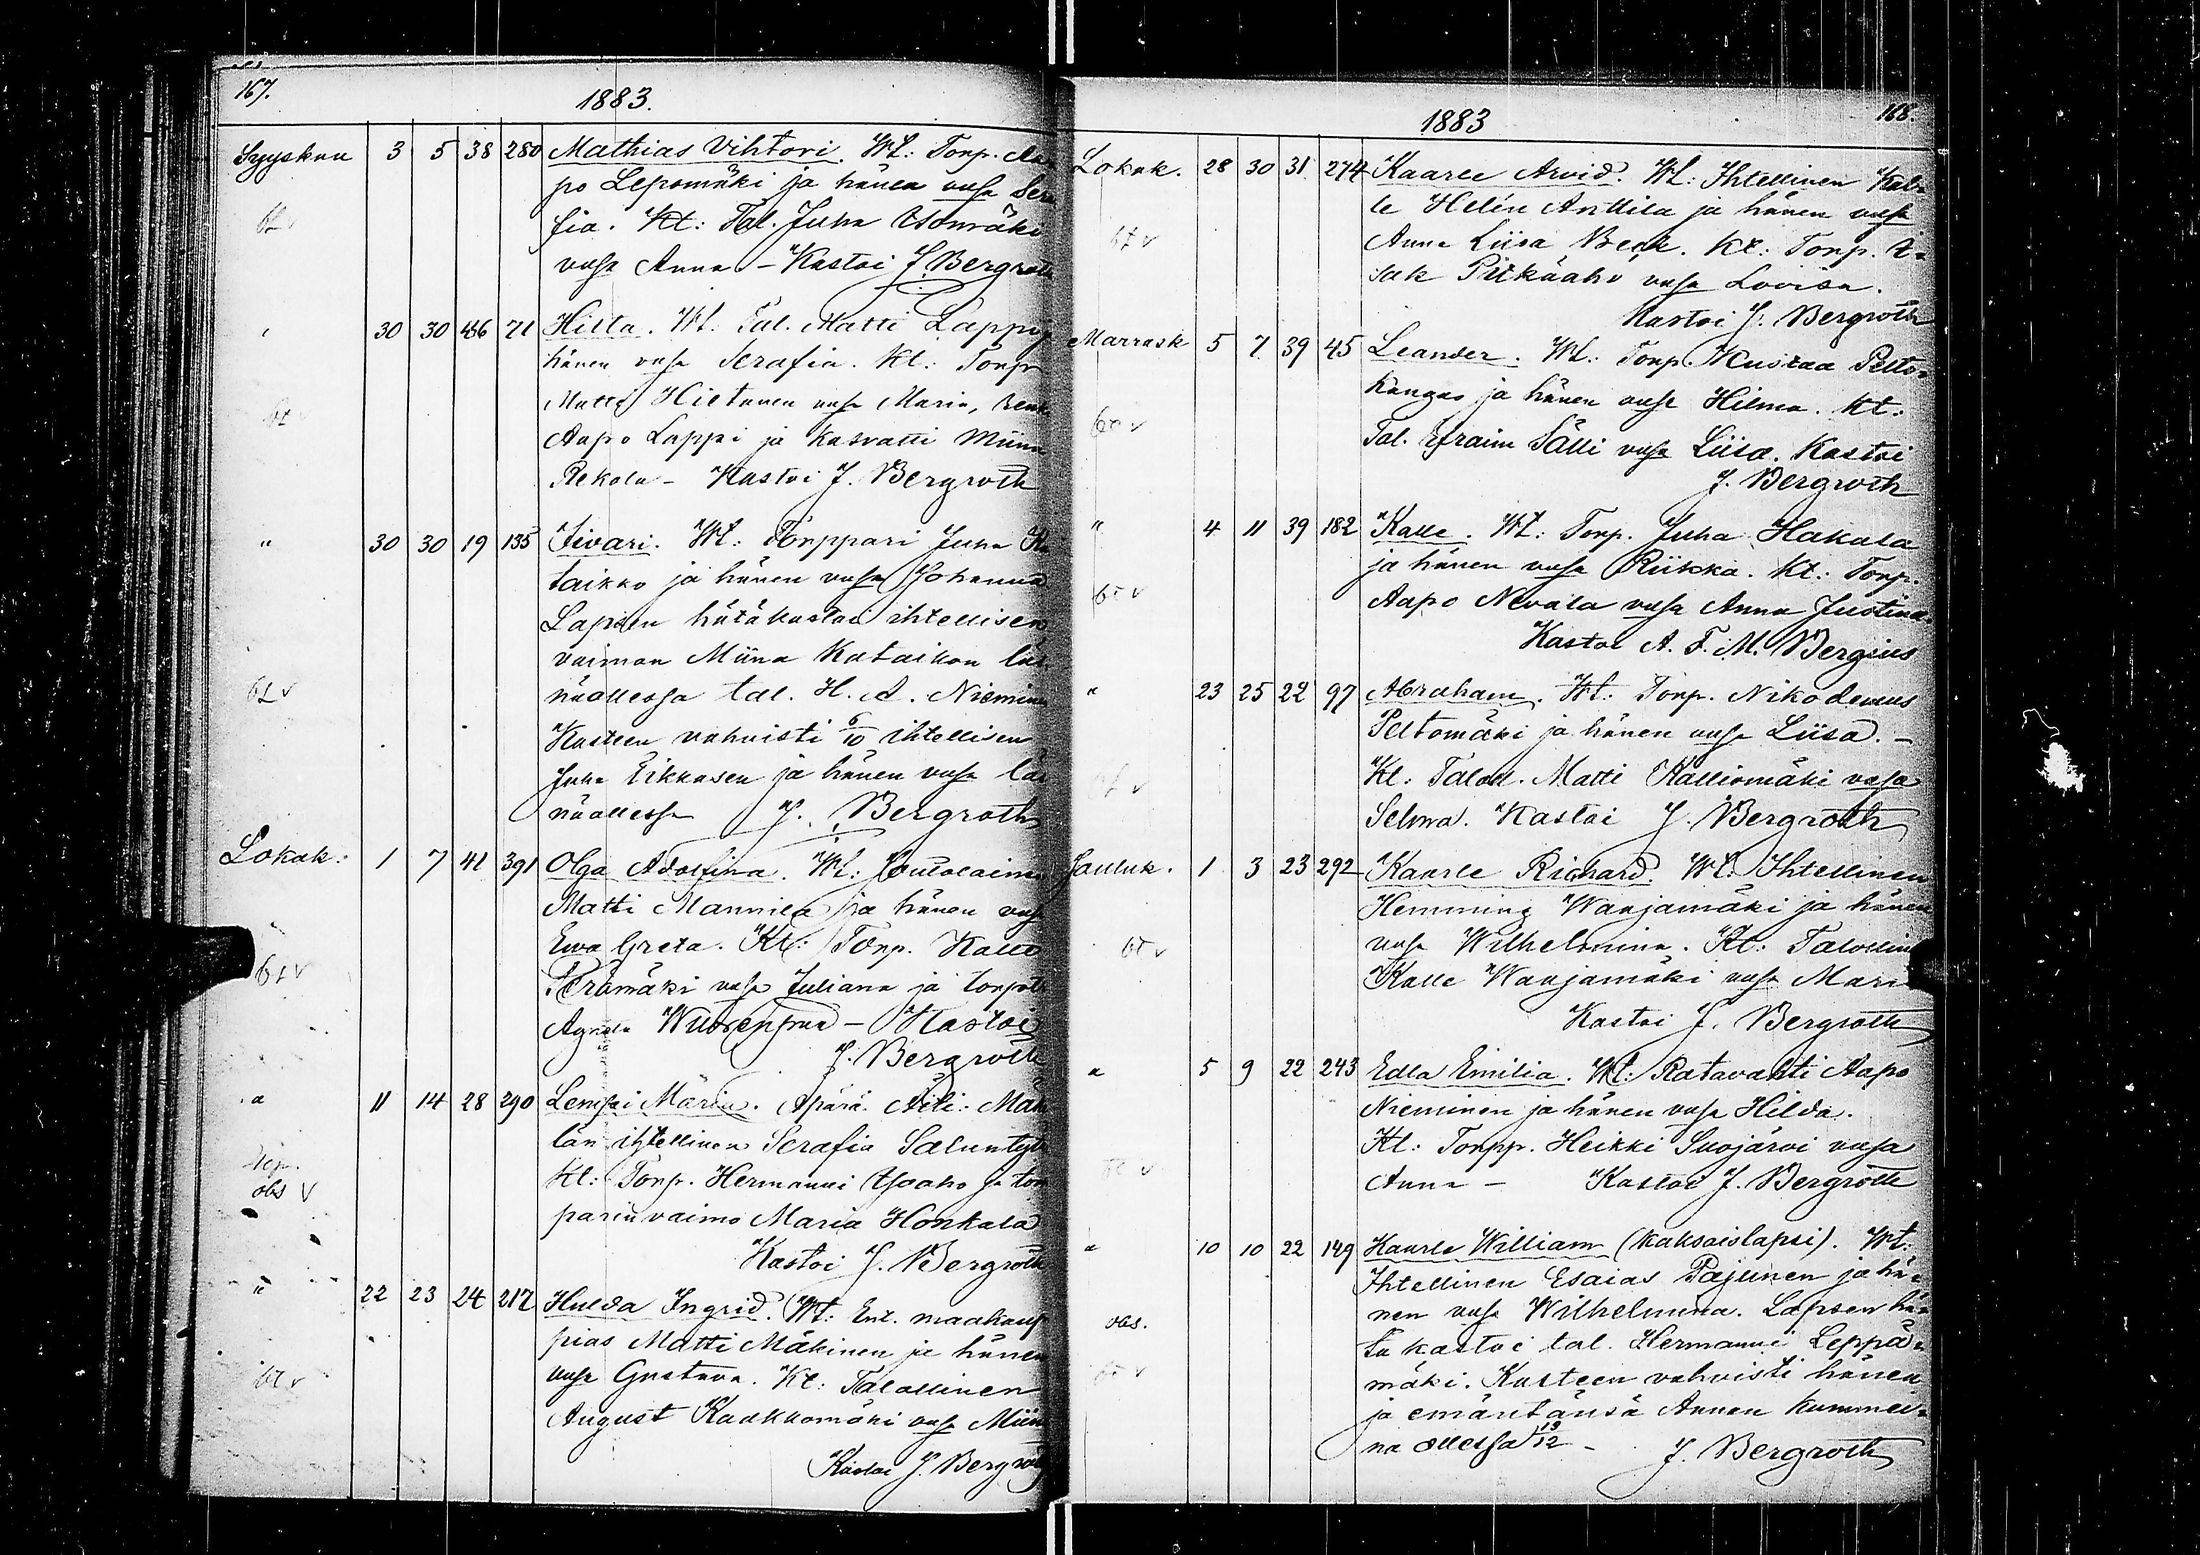 167.
1883.
Syyskuu 3 5 38 280 Mathias Vihtori. Wt: Torp. Aa
po Lepomäki ja hänen vaſa Sera
fia. Kt: Tal. Juha Isomäki
vaſa Anna – Kastoi J. Bergroth
30 30 436 71 Hilta. Wt. Tal. Matti Lappi
hänen vaſa Serafia. Kt: Torp
Matti Hietanen vaſa Maria, Renki
Aapo Lappi ja Kasvatti Miina
Rekola – Kastoi J. Bergroth
" 30 30 19 135 Iivari. Wt: Torppari Juha Ka
taikko ja hänen vaſa Johanna
Lapsen hätäkastoi ihtellisen
vaimon Miina Kataikon läs
näollessa tal. H. A. Niemine
Kasteen vahvisti 6/10 ihtellisen
Juha Eikkasen ja hänen vaſa läs
näollessa J. Bergroth
bt v
Lokak: 1 7 41 391 Olga Adolfina. Wt: Joutolainen
Matti Mannila ja hänen vaſa
Ewa Greta. Kt: Torp. Kalle
Perämäki vaſa Juliana ja torpp
– Kastoi
J. Bergroth
bt v
" 11 14 28 290 Lempi Maria. Apärä. Äiti: Mät
län ihtellinen Serafia
Kt: Torp. Hermanni Ysaho ja tor
parin vaimo Maria Honkala
Kastoi J. Bergroth
obs v
" 22 23 24 217 Hulda Ingrid. Wt: Ent. maakaup
pias Matti Mäkinen ja hänen
vaſa Gustava. Kt: Talollinen
August Kaakkomäki vaſa Miina
Kastoi J. Bergroth
bt v
168.
1883
Lokak. 28 30 31 274 Kaarle Arvid. Wt: Ihtellinen Kal
le Helén Anttila ja hänen vaſa
Anna Liisa Beck. Kt: Torp. I-
sak Pitkäaho vaſa Lovisa.
Kastoi J. Bergroth
bt v
Marrask 5 7 39 45 Leander. Wt: Torp. Kustaa Pelto-
kangas ja hänen vaſa Hilma. Kt:
Tal. Efraim Sälli vaſa Liisa. Kastoi
J. Bergroth
bt v
" 4 11 39 182 Kalle. Wt: Torp. Juha Hakala
ja hänen vaſa Riikka. Kt: Torp.
Aapo Nevala vaſa Anna Justina.
Kastoi A. F. M. Bergius
bt v
" 23 25 22 97 Abraham. Wt: Torp. Nikodemus
Peltomäki ja hänen vaſa Liisa. –
Kt: Taloll. Matti Kalliomäki vaſa
Selma. Kastoi J. Bergroth
bt v
Jouluk. 1 3 23 292 Kaarle Richard. Wt: Ihtellinen
Hemming Wanjamäki ja hänen
vaſa Wilhelmina. Kt: Talollin
Kalle Wanjamäki vaſa Maria
Kastoi J. Bergroth
bt v
" 5 9 22 243 Edla Emilia. Wt: Ratavahti Aapo
Nieminen ja hänen vaſa Hilda.
Kt: Torpp. Heikki Suojärvi vaſa
Anna – Kastoi J. Bergroth
bt v
" 10 10 22 149 Kaarle William (kaksoislapsi). Wt:
Ihtellinen Esaias Pajunen ja hä-
nen vaſa Wilhelmina. Lapsen hä
tä kastoi tal. Hermanni Leppä-
mäki. Kasteen vahvisti hänen
ja emäntänsä Annan kummei-
na ollessa 13/12 – J. Bergroth
obs.
bt v